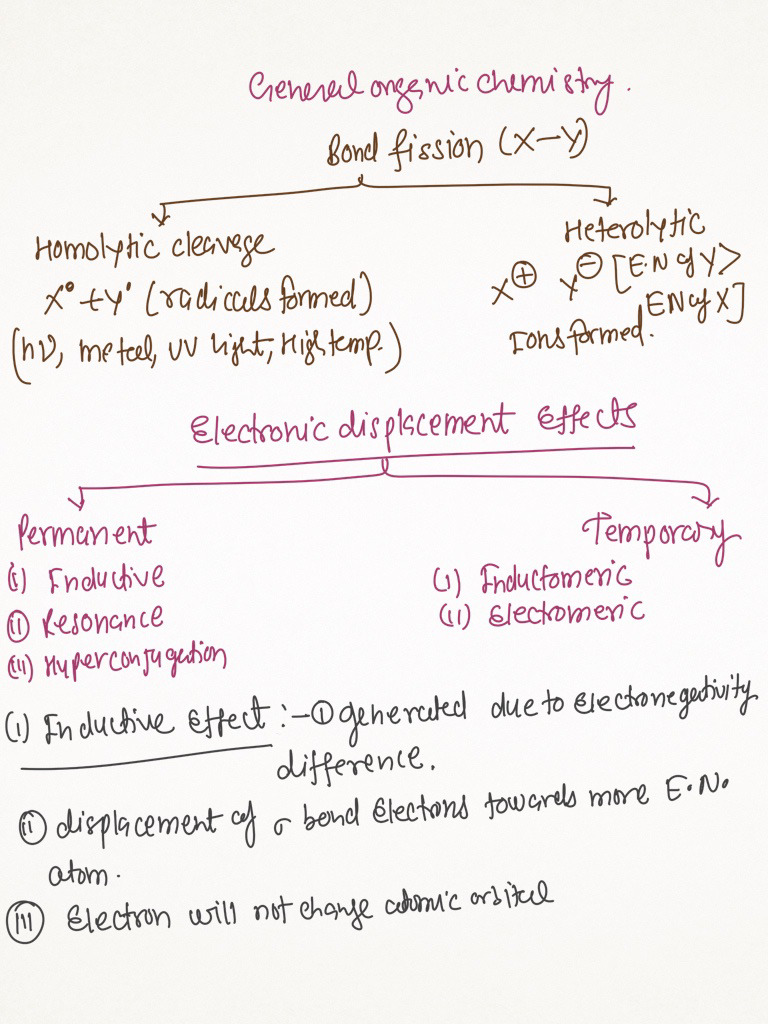 General organic chemistry.
Bond fission (X–Y)
Homolytic cleavage
X• + Y• (radicals formed)
(hν, metal, UV light, High temp.)
Heterolytic
X⊕ Y⊖ [E.N of Y >
EN of X]
Ions formed.
Electronic displacement Effects
Permanent
(i) Inductive
(ii) Resonance
(iii) Hyperconjugation
Temporary
(i) Inductomeric
(ii) Electromeric
(i) Inductive Effect :– ① generated due to Electronegativity
difference.
(ii) displacement of σ bond Electrons towards more E.N.
atom.
(iii) Electron will not change atomic orbital